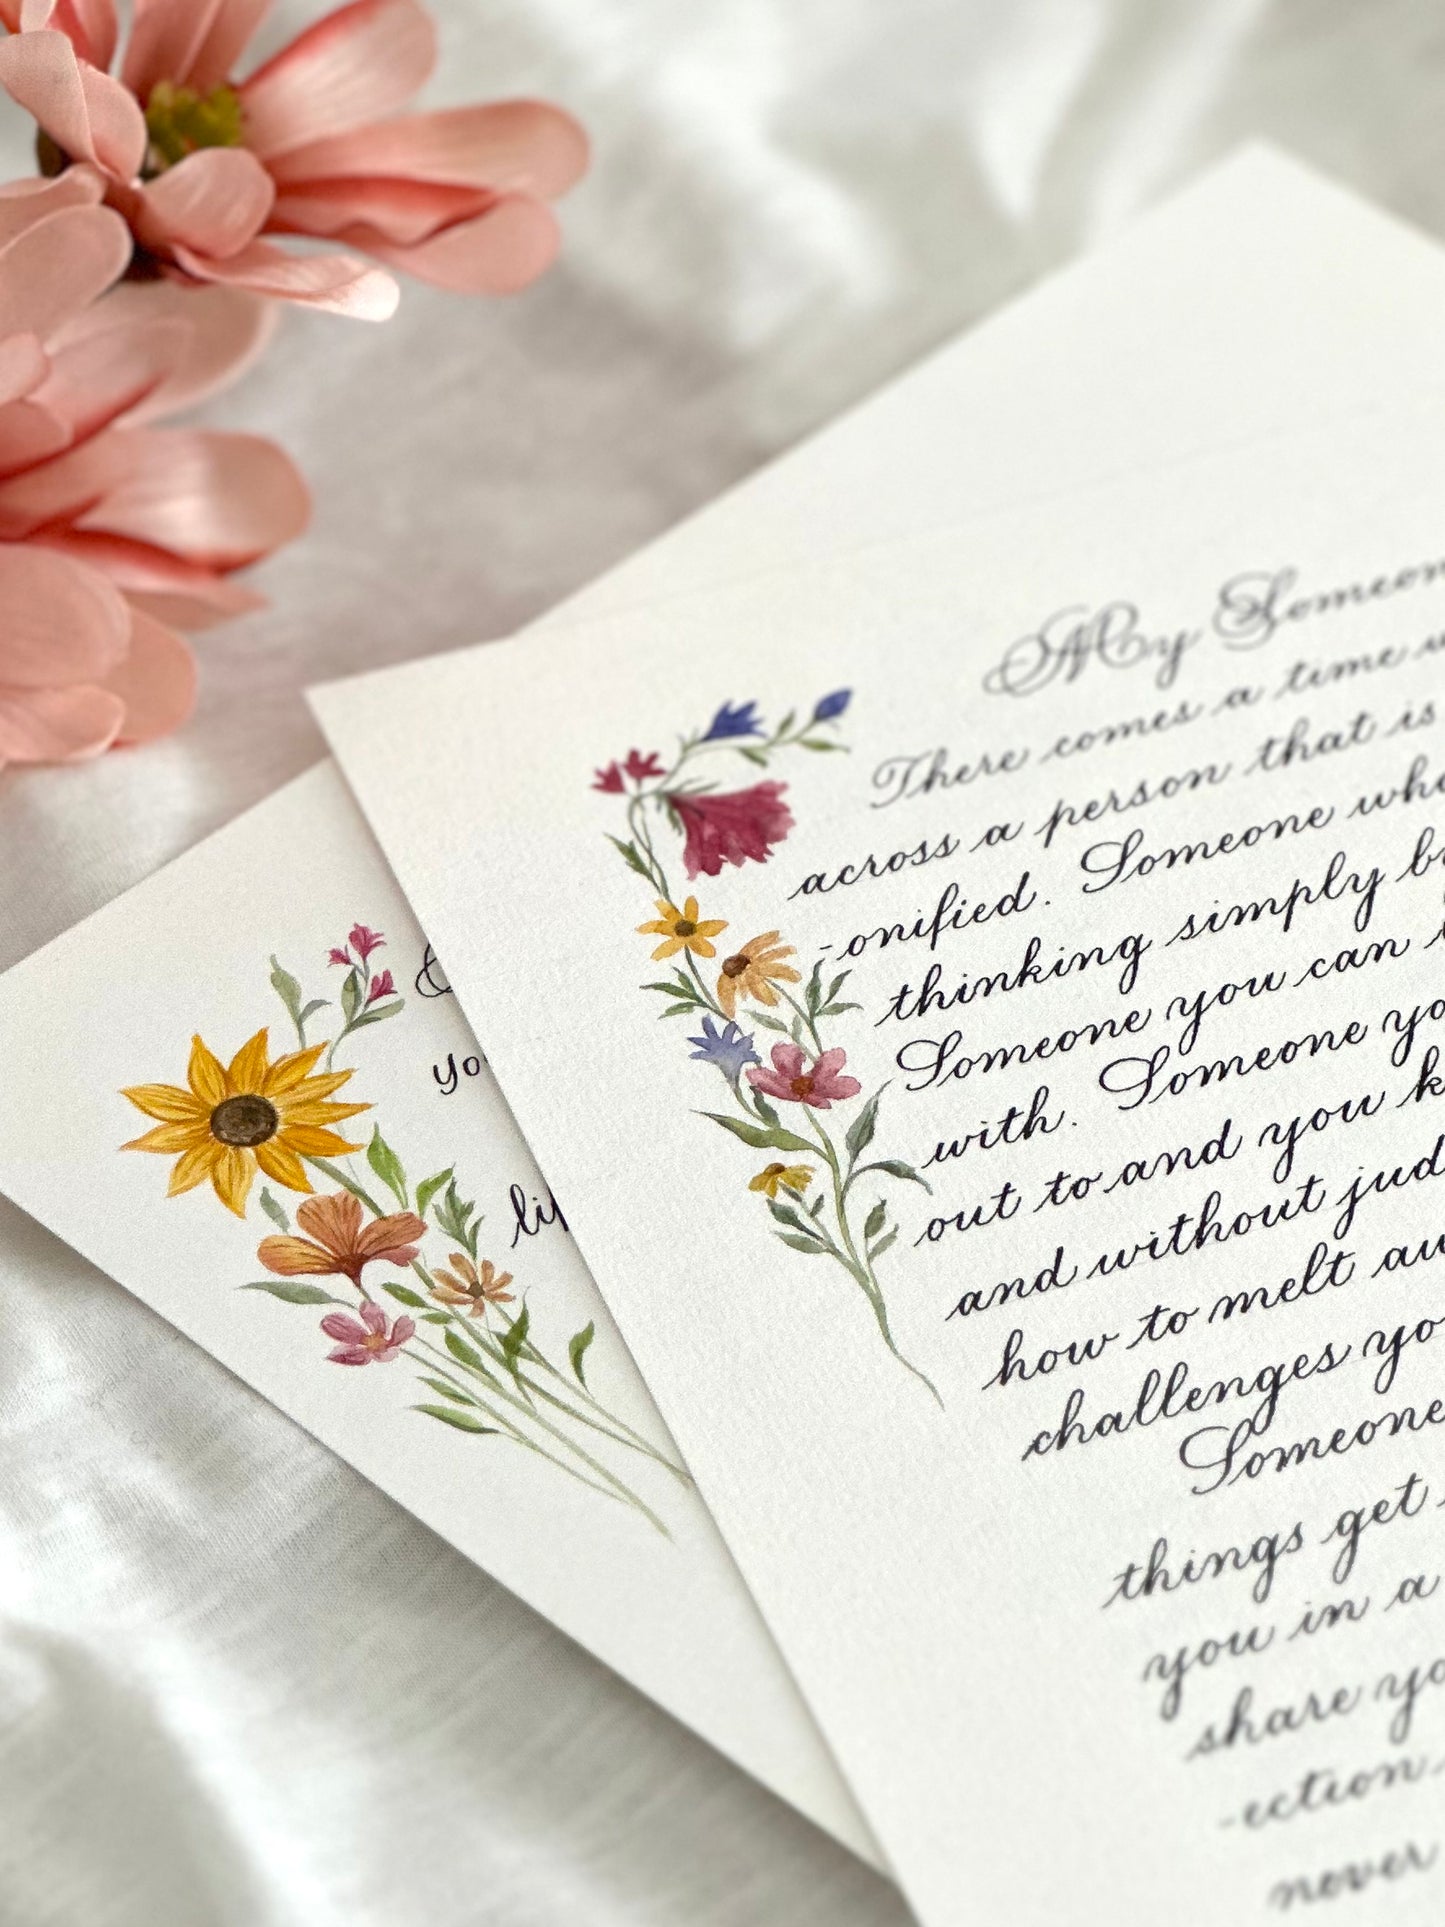 My
There comes a time
across a person that is
-onified. Someone who
thinking simply
Someone you can
with. Someone
out to and you
and without
how to melt
challenges
Someone
things get
you in a
share
-ection
never